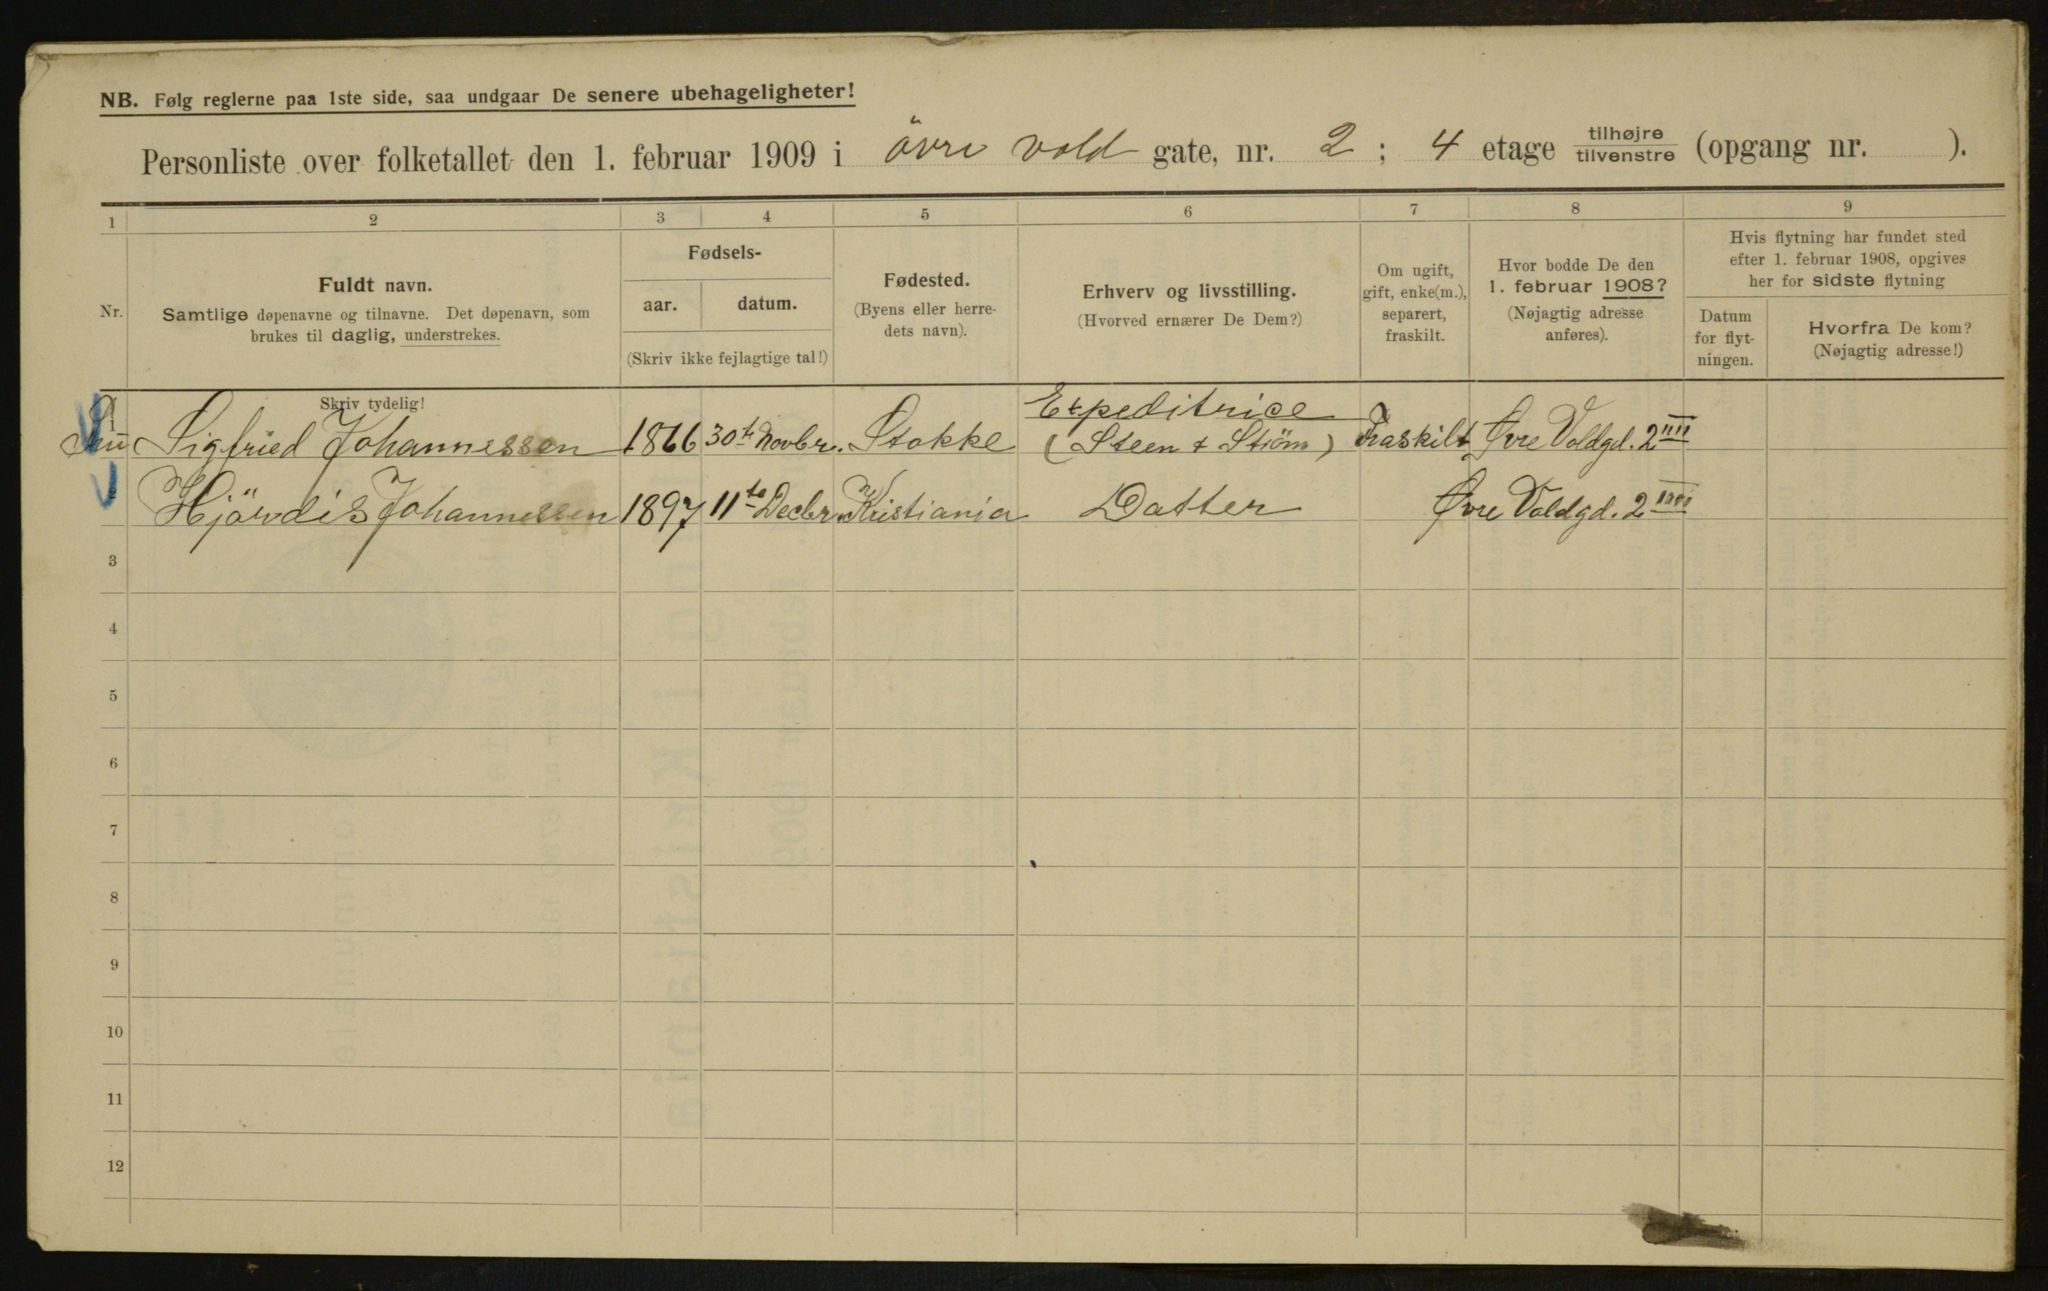 NB. Følg reglerne paa 1ste side, saa undgaar De senere ubehageligheter!
Personliste over folketallet den 1. februar 1909 i övre vold gate, nr. 2 ; 4 etage tilhøjre tilvenstre (opgang nr. ).
1 2 3 4 5 6 7 8 9
Nr.
Fuldt navn.
Samtlige døpenavne og tilnavne. Det døpenavn, som
brukes til daglig, understrekes.
Fødsels-
aar. datum.
(Skriv ikke fejlagtige tal!)
Fødested.
(Byens eller herre-
dets navn).
Erhverv og livsstilling.
(Hvorved ernærer De Dem?)
Om ugift,
gift, enke(m.),
separert,
fraskilt.
Hvor bodde De den
1. februar 1908?
(Nøjagtig adresse
anføres).
Hvis flytning har fundet sted
efter 1. februar 1908, opgives
her for sidste flytning
Datum
for flyt-
ningen.
Hvorfra De kom?
(Nøjagtig adresse!)
Skriv tydelig!
Expeditrice
1 Sigfried Johannessen 1866 30te Novbr. Stokke (Steen & Ström) Fraskilt Øvre Voldgd. 2 IIII
Hjördis Johannessen 1897 11te Decbr. Kristiania Datter Øvre Voldgd. 2 IIII
3
4
5
6
7
8
9
10
11
12